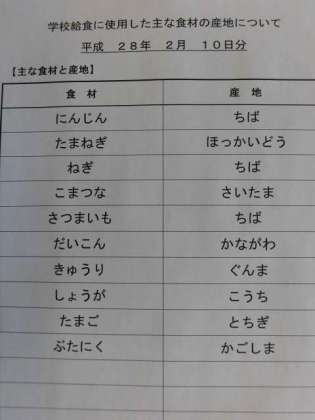 学校給食に使用した主な食材の産地について
平成 28年 2月 10日分
【主な食材と産地】
食 材 産 地
にんじん ちば
たまねぎ ほっかいどう
ねぎ ちば
こまつな さいたま
さつまいも ちば
だいこん かながわ
きゅうり ぐんま
しょうが こうち
たまご とちぎ
ぶたにく かごしま